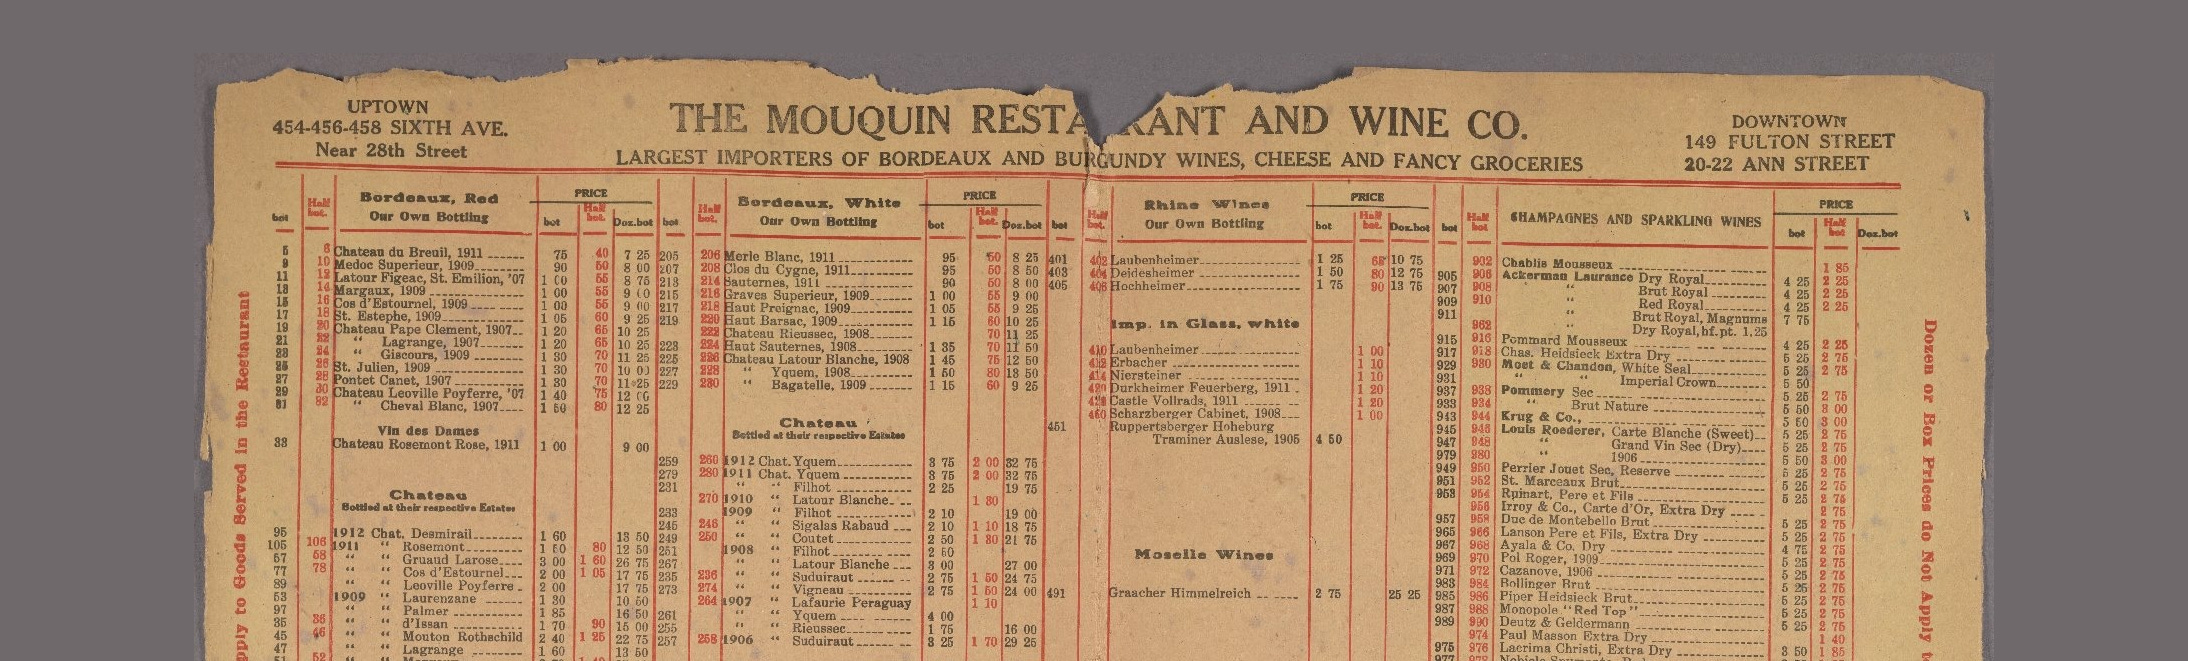 UPTOWN
454-456-458 SIXTH AVE.
Near 28th Street
THE MOUQUIN RESTAURANT AND WINE CO.
LARGEST IMPORTERS OF BORDEAUX AND BURGUNDY WINES, CHEESE AND FANCY GROCERIES
DOWNTOWN
149 FULTON STREET
20-22 ANN STREET
pply to Goods Served in the Restaurant
bot Half bot. Bordeaux, Red PRICE
Our Own Bottling bot Half bot. Doz.bot
5 6 Chateau du Breuil, 1911 75 40 7 25
9 10 Medoc Superieur, 1909 90 50 8 00
11 12 Latour Figeac, St. Emilion, '07 1 00 55 8 75
13 14 Margaux, 1909 1 00 55 9 00
15 16 Cos d'Estournel, 1909 1 00 55 9 00
17 18 St. Estephe, 1909 1 05 60 9 25
19 20 Chateau Pape Clement, 1907 1 20 65 10 25
21 22 “ Lagrange, 1907 1 20 65 10 25
23 24 “ Giscours, 1909 1 30 70 11 25
25 26 St. Julien, 1909 1 30 70 10 00
27 28 Pontet Canet, 1907 1 30 70 11 25
29 30 Chateau Leoville Poyferre, '07 1 40 75 12 00
31 32 “ Cheval Blanc, 1907 1 50 80 12 25
Vin des Dames
33 Chateau Rosemont Rose, 1911 1 00 9 00
Chateau
Bottled at their respective Estates
95 1912 Chat. Desmirail 1 60 13 50
105 106 1911 “ Rosemont 1 50 80 12 50
57 58 “ “ Gruaud Larose 3 00 1 60 26 75
77 78 “ “ Cos d'Estournel 2 00 1 05 17 75
89 “ “ Leoville Poyferre 2 00 17 75
53 1909 “ Laurenzane 1 30 10 50
97 “ “ Palmer 1 85 16 50
35 36 “ “ d'Issan 1 70 90 15 00
45 46 “ “ Mouton Rothschild 2 40 1 25 22 75
47 “ “ Lagrange 1 60 13 50
bot Half bot. Bordeaux, White PRICE
Our Own Bottling bot Half bot. Doz.bot
205 206 Merle Blanc, 1911 95 50 8 25
207 208 Clos du Cygne, 1911 95 50 8 50
213 214 Sauternes, 1911 90 50 8 00
215 216 Graves Superieur, 1909 1 00 55 9 00
217 218 Haut Preignac, 1909 1 05 55 9 25
219 220 Haut Barsac, 1909 1 15 60 10 25
222 Chateau Rieussec, 1908 70 11 25
223 224 Haut Sauternes, 1908 1 35 70 11 50
225 226 Chateau Latour Blanche, 1908 1 45 75 12 50
227 228 “ Yquem, 1908 1 50 80 18 50
229 230 “ Bagatelle, 1909 1 15 60 9 25
Chateau
Bottled at their respective Estates
259 260 1912 Chat. Yquem 3 75 2 00 32 75
279 280 1911 Chat. Yquem 3 75 2 00 32 75
231 “ “ Filhot 2 25 19 75
270 1910 “ Latour Blanche 1 30
233 1909 “ Filhot 2 10 19 00
245 246 “ “ Sigalas Rabaud 2 10 1 10 18 75
249 250 “ “ Coutet 2 50 1 30 21 75
251 1908 “ Filhot 2 50
267 “ “ Latour Blanche 3 00 27 00
235 236 “ “ Suduiraut 2 75 1 50 24 75
273 274 “ “ Vigneau 2 75 1 50 24 00
264 1907 “ Lafaurie Peraguay 1 10
261 “ “ Yquem 4 00
255 “ “ Rieussec 1 75 16 00
257 258 1906 “ Suduiraut 3 25 1 70 29 25
bot Half bot. Rhine Wines PRICE
Our Own Bottling bot Half bot. Doz.bot
401 402 Laubenheimer 1 25 68 10 75
403 404 Deidesheimer 1 50 80 12 75
405 406 Hochheimer 1 75 90 13 75
Imp. in Glass, white
410 Laubenheimer 1 00
412 Erbacher 1 10
414 Niersteiner 1 10
420 Durkheimer Feuerberg, 1911 1 20
Castle Vollrads, 1911 1 20
460 Scharzberger Cabinet, 1908 1 00
451 Ruppertsberger Hoheburg
Traminer Auslese, 1905 4 50
Moselle Wines
491 Graacher Himmelreich 2 75 25 25
bot Half bot. CHAMPAGNES AND SPARKLING WINES PRICE
bot Half bot Doz.bot
902 Chablis Mousseux 1 85
905 906 Ackerman Laurance Dry Royal 4 25 2 25
907 908 “ Brut Royal 4 25 2 25
909 910 “ Red Royal 4 25 2 25
911 “ Brut Royal, Magnums 7 75
962 “ Dry Royal, hf. pt. 1.25
915 916 Pommard Mousseux 4 25 2 25
917 918 Chas. Heidsieck Extra Dry 5 25 2 75
929 930 Moet & Chandon, White Seal 5 25 2 75
931 “ “ Imperial Crown 5 50
937 938 Pommery Sec 5 25 2 75
933 934 “ Brut Nature 5 50 3 00
943 944 Krug & Co., 5 50 3 00
945 946 Louis Roederer, Carte Blanche (Sweet) 5 25 2 75
947 948 “ Grand Vin Sec (Dry) 5 25 2 75
979 980 “ 1906 5 50 3 00
949 950 Perrier Jouet Sec, Reserve 5 25 2 75
951 952 St. Marceaux Brut 5 25 2 75
953 954 Ruinart, Pere et Fils 5 25 2 75
956 Irroy & Co., Carte d'Or, Extra Dry 2 75
957 958 Duc de Montebello Brut 5 25 2 75
965 966 Lanson Pere et Fils, Extra Dry 5 25 2 75
967 968 Ayala & Co. Dry 4 75 2 75
969 970 Pol Roger, 1909 5 25 2 75
971 972 Cazanove, 1906 5 25 2 75
983 984 Bollinger Brut 5 25 2 75
985 986 Piper Heidsieck Brut 5 25 2 75
987 988 Monopole “Red Top” 5 25 2 75
989 990 Deutz & Geldermann 5 25 2 75
974 Paul Masson Extra Dry 1 40
975 976 Lacrima Christi, Extra Dry 3 50 1 85
Dozen or Box Prices do Not Apply t